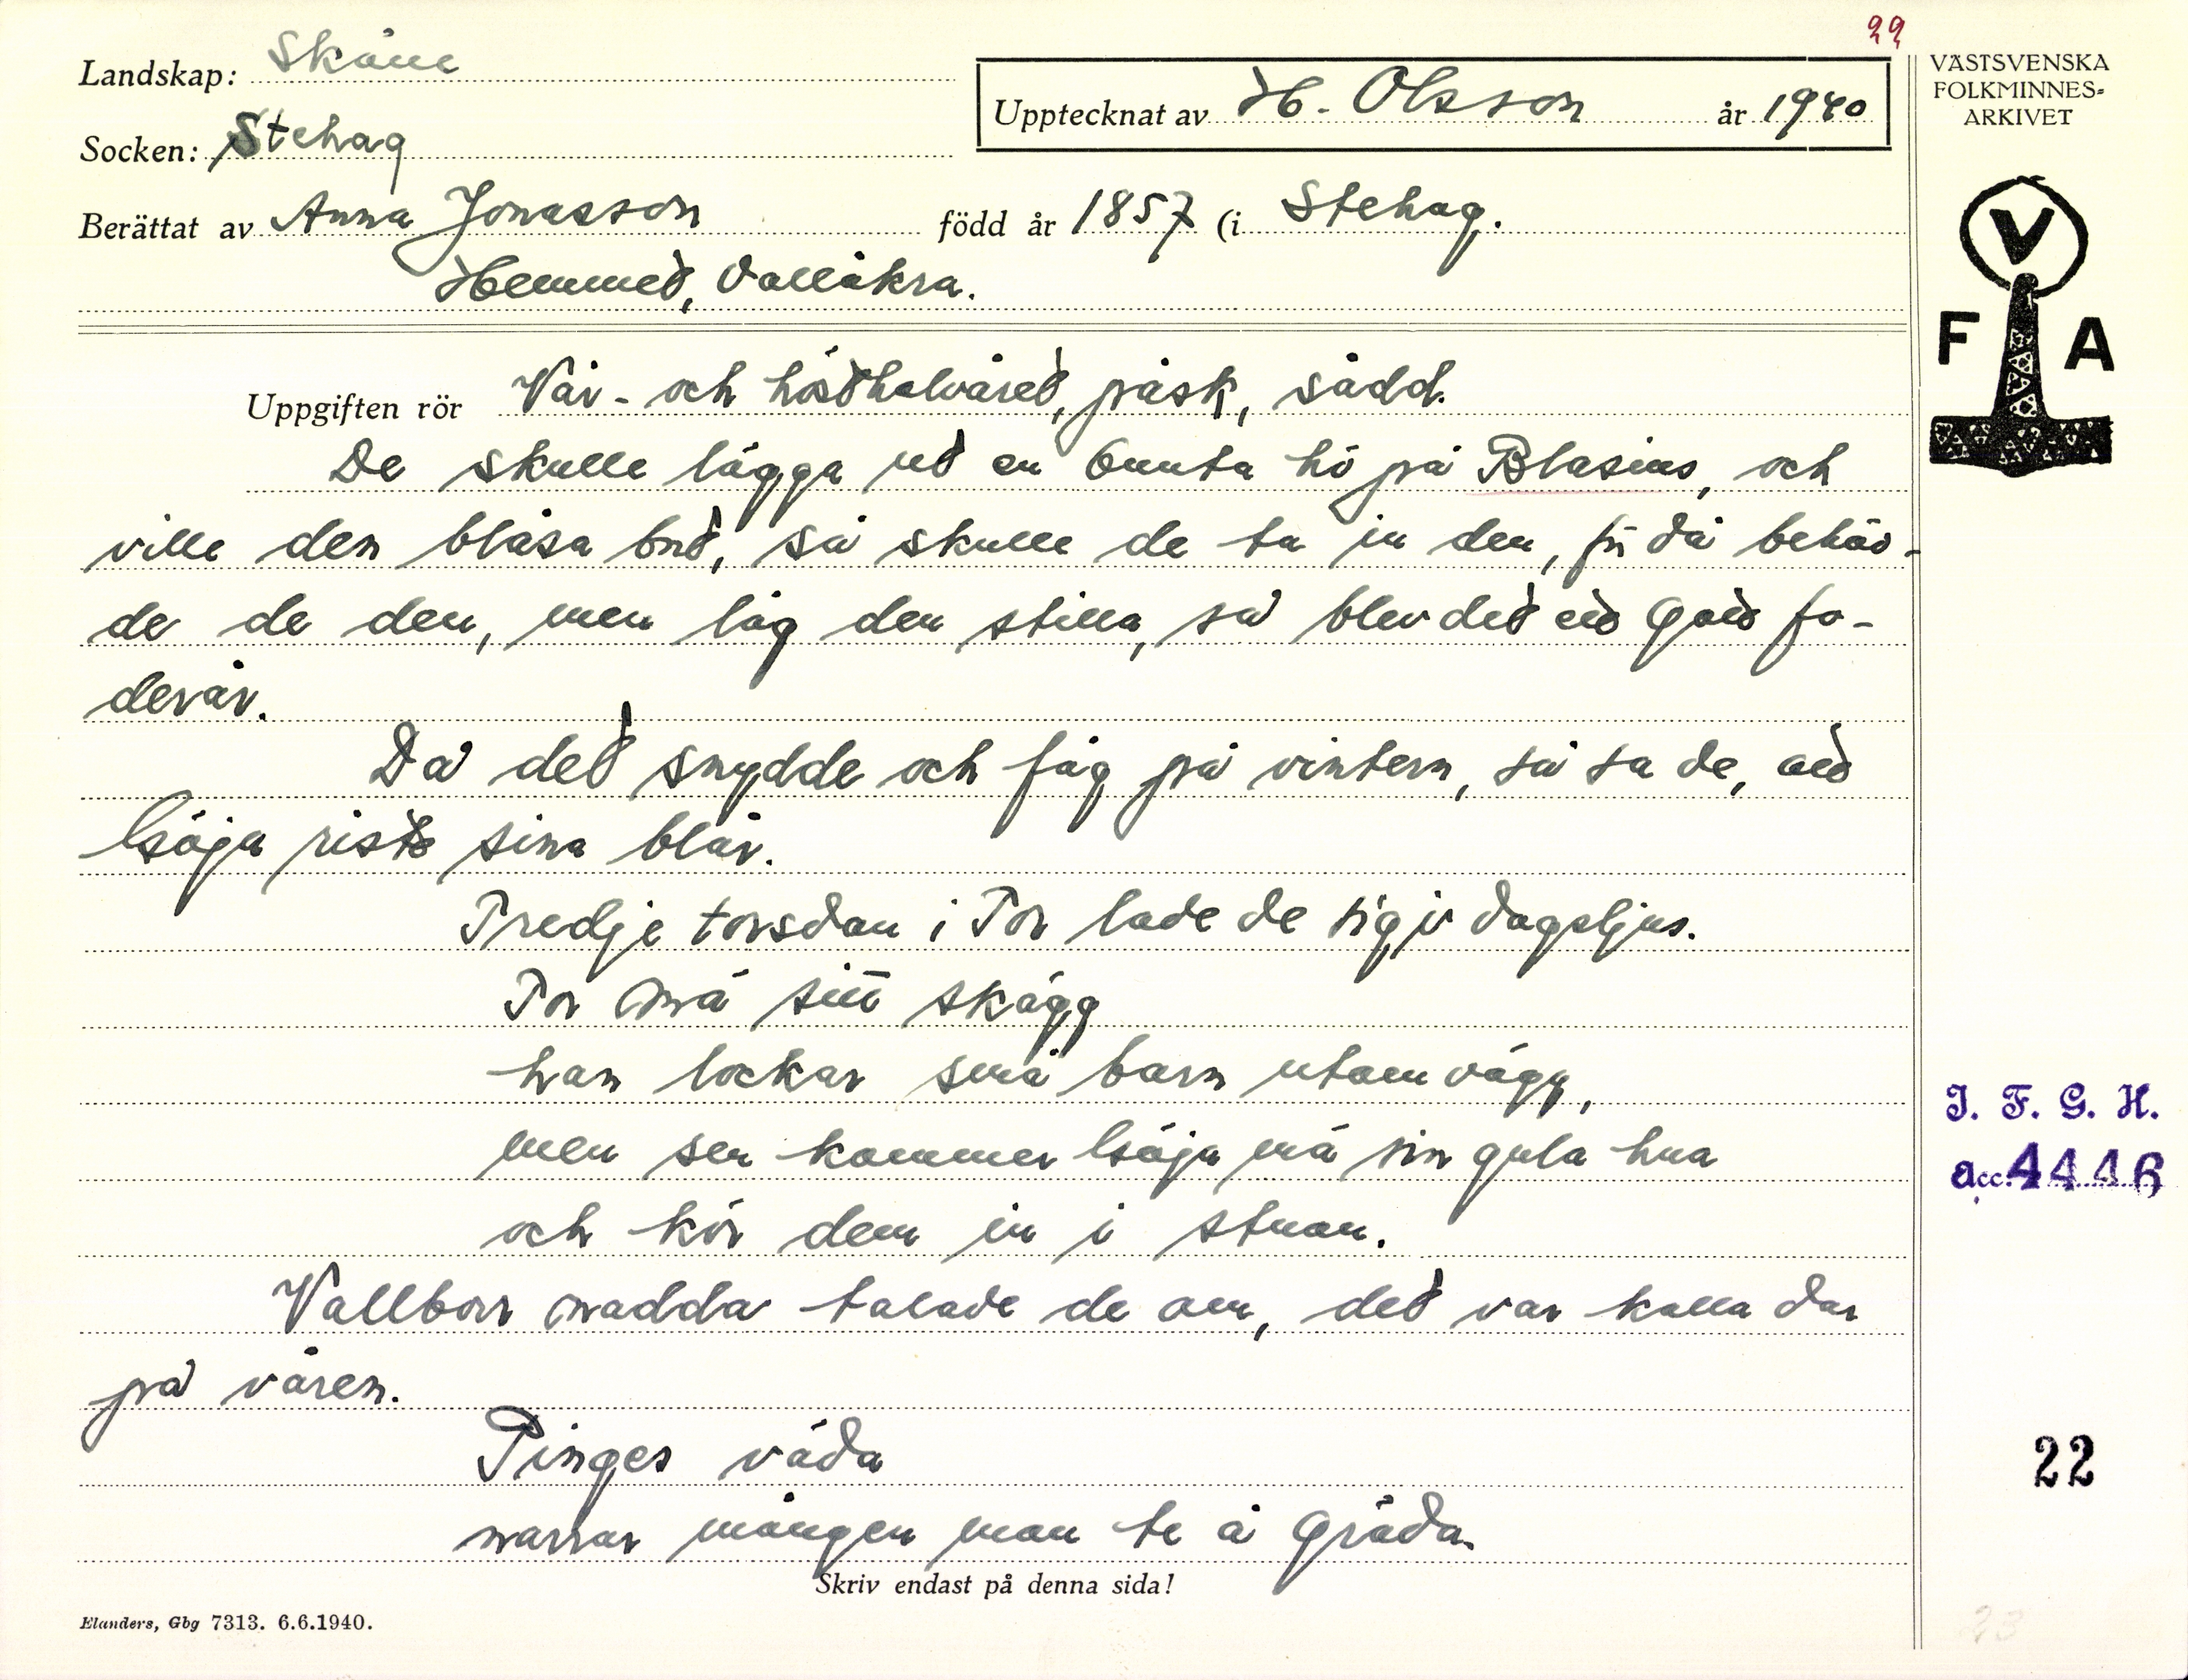 22
Landskap: Skåne
Upptecknat av H. Olsson år 1940
VÄSTSVENSKA
FOLKMINNES-
ARKIVET
Socken: Stehag
Berättat av Anna Jonasson född år 1857 (i Stehag.
Hemmet, Vallåkra.
V
F A
Uppgiften rör Vår- och hösthalvåret, påsk, sådd.
De skulle lägga ut en bunta hö på Blasius, och
ville den blåsa bort, så skulle de ta in den, för då behöv-
de de den, men låg den stilla, så blev det ett gott fo-
derår.
Då det snydde och fäg på vintern, så sa de, att
Göja rister sina blår.
Tredje torsdan i Tor lade de sig i dagsljus.
Tor må sitt skägg
han lockar små barn utom vägg,
men sen kommer Göja må sin gula hua
och kör dem in i stuan.
Vallborr madda talade de om, det var kalla dar
på våren.
Pinges väda
narrar mången man te å gräda.
Skriv endast på denna sida!
Elanders, Gbg 7313. 6.6.1940.
I. F. G. H.
acc. 4446
22
23